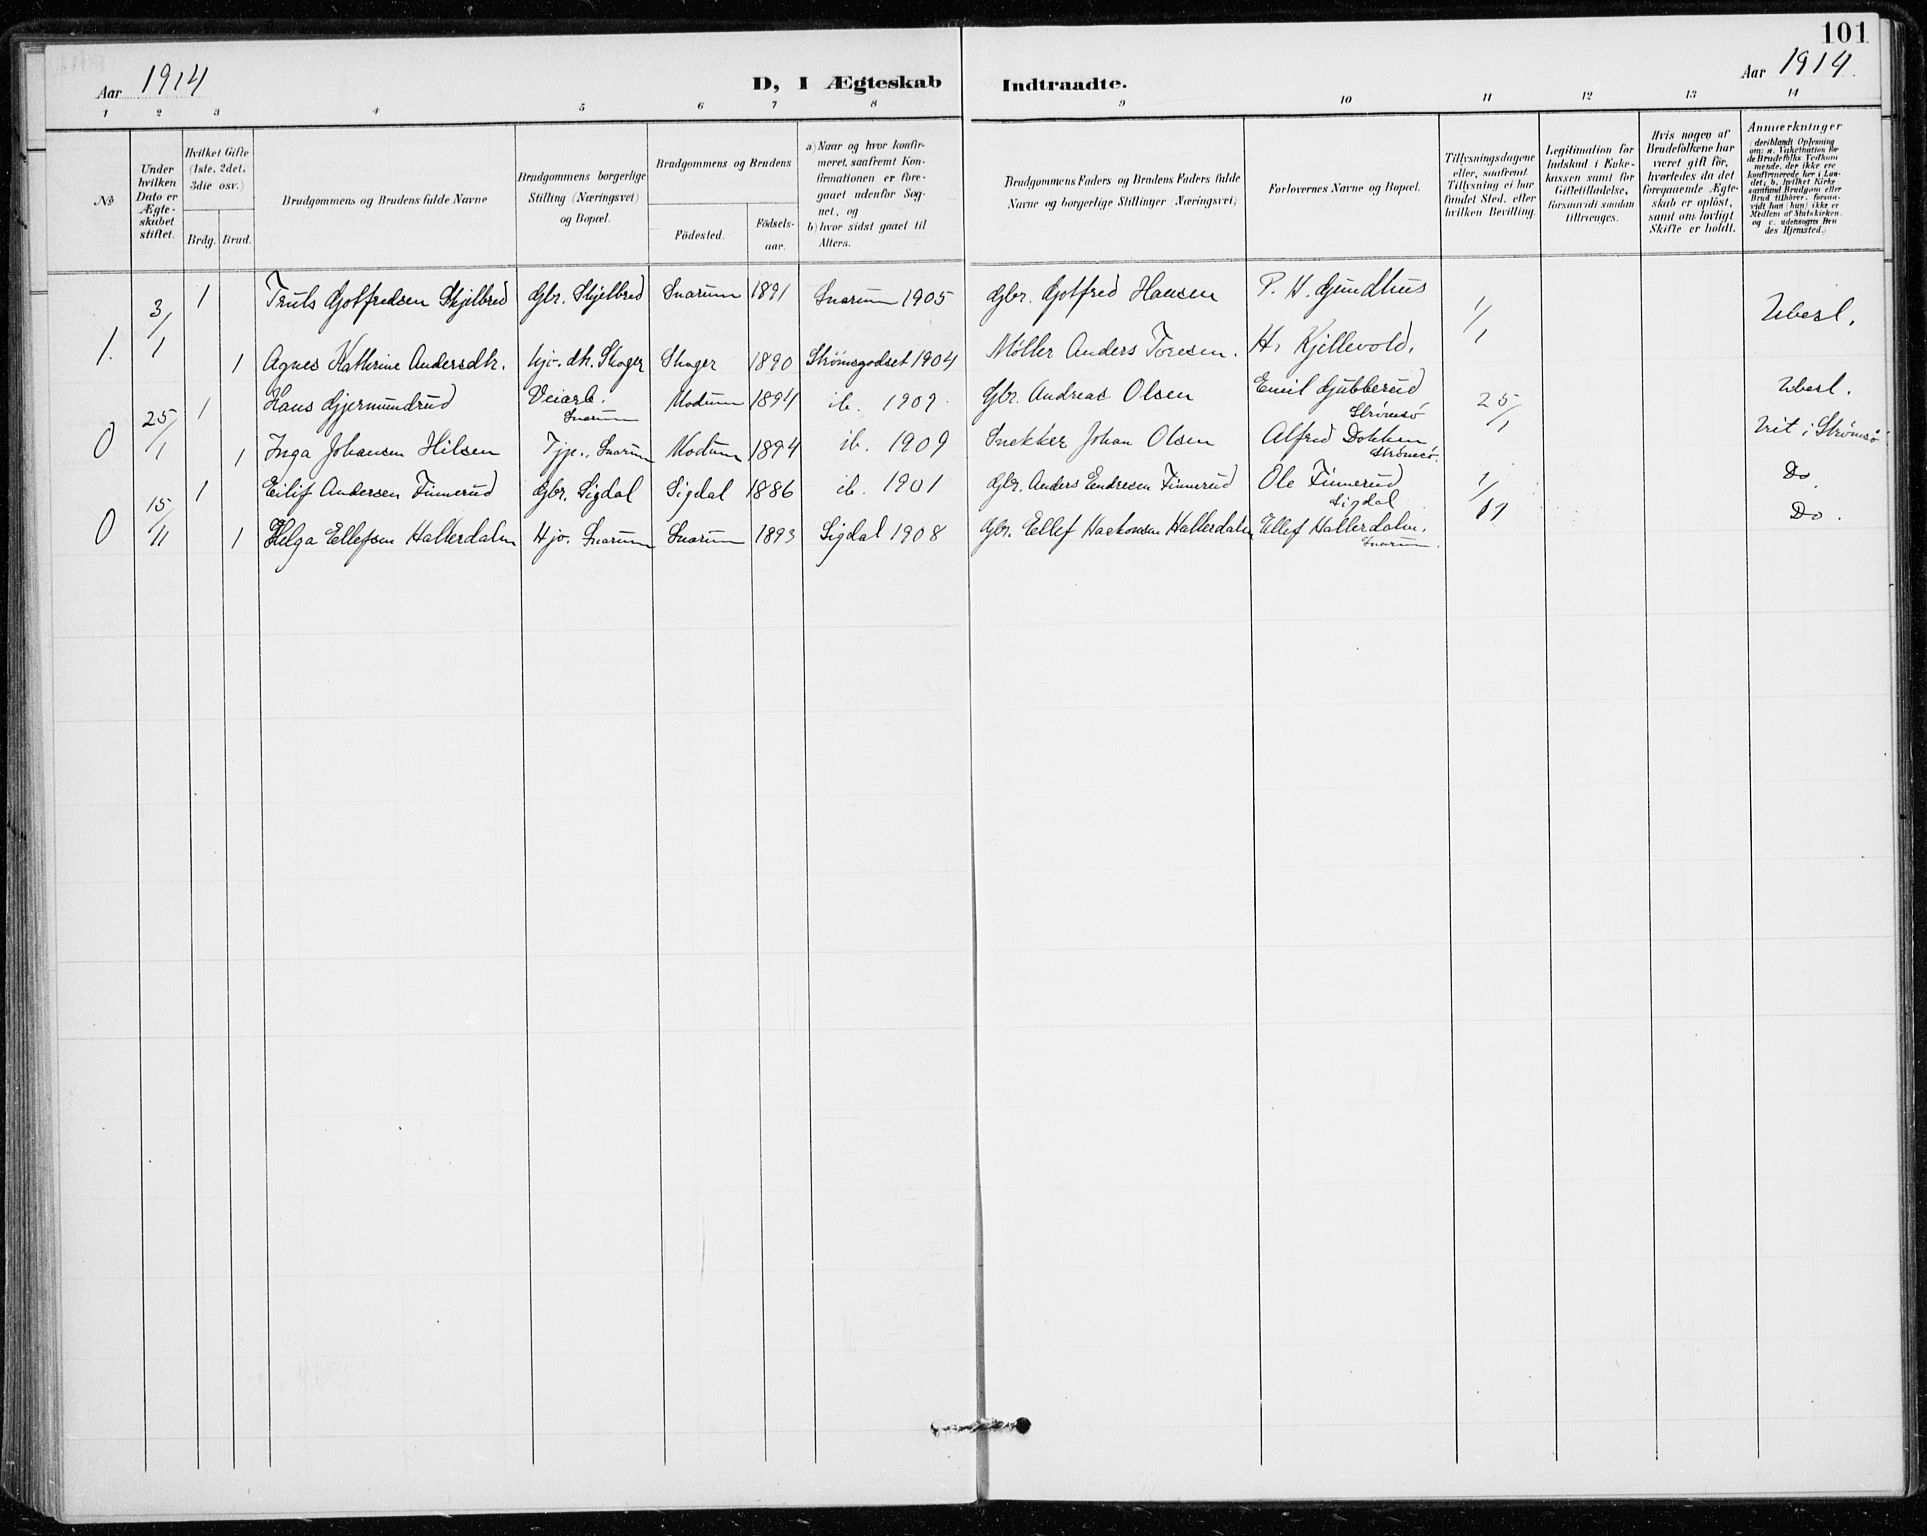 101
Aar 1914
D, I Ægteskab Indtraadte.
Aar 1914.
1 2 3 4 5 6 7 8 9 10 11 12 13 14
No
Under hvilken Dato er Ægteskabet stiftet.
Hvilket Gifte (1ste, 2det, 3die osv.)
Brdg. Brud.
Brudgommens og Brudens fulde Navne
Brudgommens borgerlige Stilling (Næringsvei) og Bopæl.
Brudgommens og Brudens
Födested. Födsels-aar.
a) Naar og hvor konfirmeret, saafremt Konfirmationen er foregaaet udenfor Sognet, og
b) hvor sidst gaaet til Alters.
Brudgommens Faders og Brudens Faders fulde Navne og borgerlige Stillinger (Næringsvei)
Forlovernes Navne og Bopæl.
Tillysningsdagene eller, saafremt Tillysning ei har fundet Sted, efter hvilken Bevilling.
Legitimation for Indskud i Enkekassen samt for Giftetilladelse, forsaavidt saadan tiltrænges.
Hvis nogen af Brudefolkene har været gift för, hvorledes da det foregaaende Ægteskab er oplöst, samt om lovligt Skifte er holdt.
Anmærkninger (deriblandt Oplysning om: a. Vakcination for de Brudefolks Vedkommende, der ikke ere konfirmerede her i Landet; b. hvilket Kirkesamfund Brudgom eller Brud tilhörer, forsaavidt han (hun) ikke er Medlem af Statskirken, og c. udensogns Brudes Hjemsted.)
1. 3/1 1 Truls Gotfredsen Skjelbred Gbr. Skjelbred Snarum 1891 Snarum 1905 Gbr. Gotfred Hansen P. H. Gundhus 1/1 Ubesl.
1 Agnes Kathrine Andersdtr. hjv. dtr. Skoger Skoger 1890 Strömsgodset 1904 Møller Anders Toresen. H. Kjellevold.
0 25/1 1 Hans Gjermundrud Veiarb. Snarum Modum 1894 ib. 1909 Gbr. Andreas Olsen Emil Gubberud Strömsö 25/1 Ubesl.
1 Inga Johansen Hilsen Tjp., Snarum Modum 1894 ib. 1909 Snekker Johan Olsen Alfred Dokken, Strömsö. Viet i Strömsö
0 15/11 1 Eilif Andersen Finnerud Gbr. Sigdal Sigdal 1886 ib. 1901 Gbr. Anders Endresen Finnerud Ole Finnerud Sigdal 1/11 Do.
1 Helga Ellefsen Hallerdalen Hjv. Snarum Snarum 1893 Sigdal 1908 Gbr. Ellef Haakonsen Hallerdalen Ellef Hallerdalen. Snarum. Do.